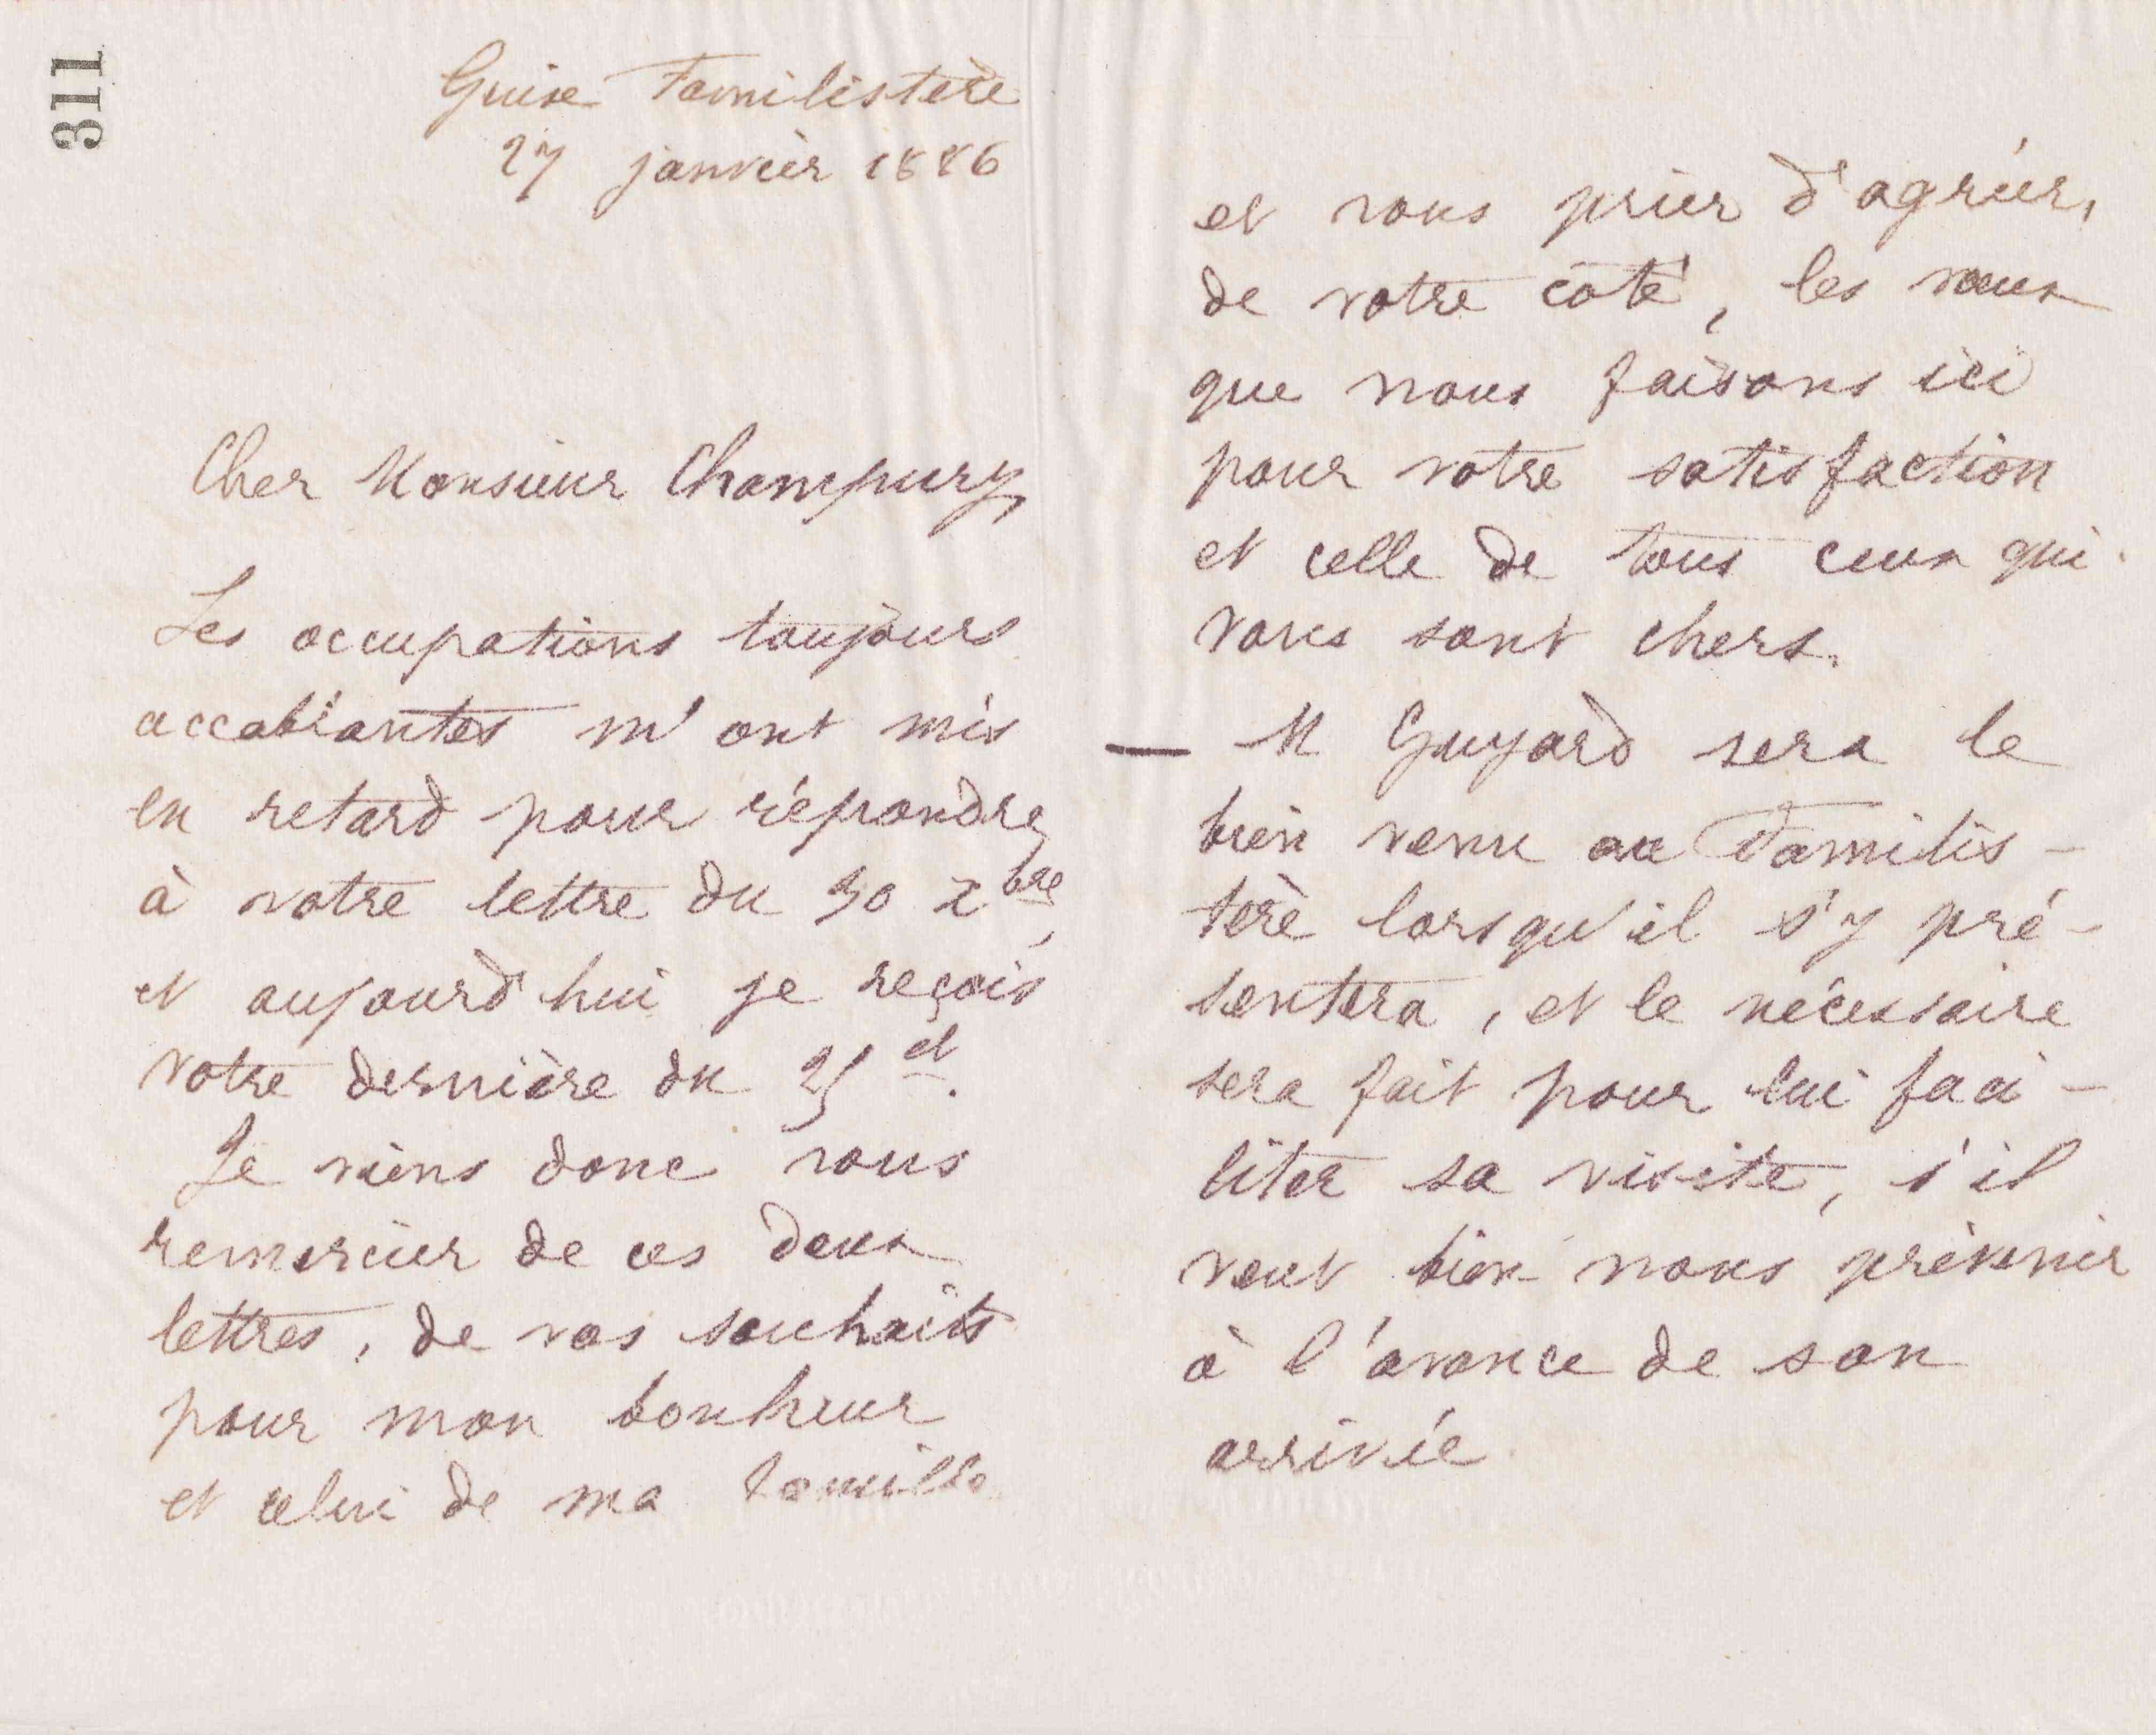 311
Guise Familistère
27 janvier 1886
Cher Monsieur Champury,
Les occupations toujours
accablantes m'ont mis
en retard pour répondre
à votre lettre du 30 Xbre,
et aujourd'hui je reçois
votre dernière du 25 ct.
Je viens donc vous
remercier de ces deux
lettres, de vos souhaits
pour mon bonheur
et celui de ma famille
et vous prier d'agréer,
de votre côté, les vœux
que nous faisons ici
pour votre satisfaction
et celle de tous ceux qui
vous sont chers.
— M Guyard sera le
bien venu au Familis-
tère lorsqu'il s'y pré-
sentera, et le nécessaire
sera fait pour lui faci-
liter sa visite, s'il
veut bien nous prévenir
à l'avance de son
arrivée